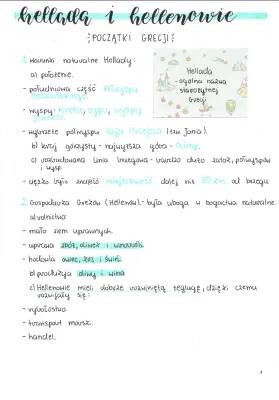 hellada i hellenowie
POCZĄTKI GRECJI
Hellada
- ogólna nazwa
starożytnej
Grecji
1. Warunki naturalne Hellady:
a) położenie.
- południowa część Półwyspu
Bałkańskiego
- wyspy: Kreta, Cypr, wyspy
- wybrzeże półwyspu Azja Mniejsza (tzw. Jonia).
b) kraj górzysty - najwyższa góra - Olimp.
c) rozbudowana linia brzegowa - bardzo dużo zatok, półwyspów
i wysp.
- ciężko było znaleźć miejscowość dalej niż 90 km od brzegu
2. Gospodarka Greków (Hellenów) - była uboga w bogactwa naturalne.
a) rolnictwo:
- mało ziem uprawnych.
- uprawa zbóż, oliwek i winorośli.
- hodowla owiec, kóz i świń.
b) produkcja oliwy i wina
c) Hellenowie mieli dobrze rozwiniętą żeglugę, dzięki czemu
rozwijały się:
- rybołóstwo.
- transport morski.
- handel.